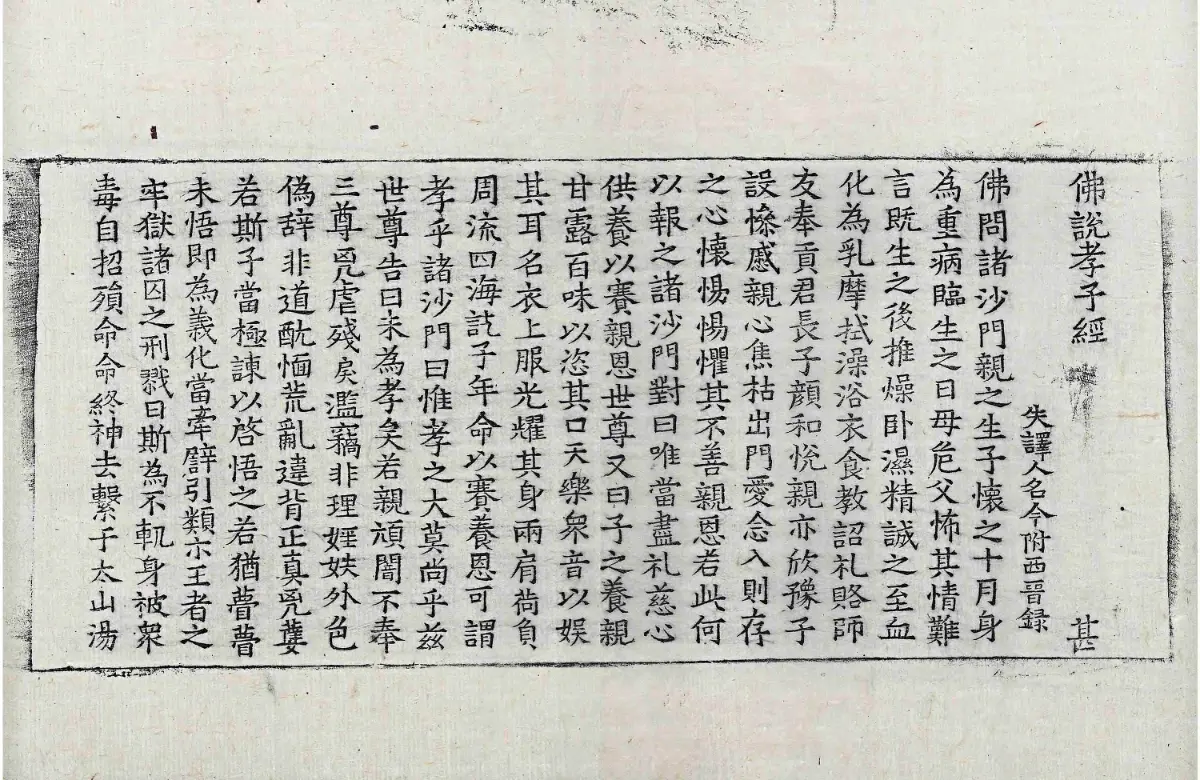 佛說孝子經 甚
失譯人名今附西晉録
佛問諸沙門親之生子懷之十月身
為重病臨生之日母危父怖其情難
言既生之後推燥卧濕精誠之至血
化為乳摩拭澡浴衣食教詔礼賂師
友奉貢君長子顏和悅親亦欣豫子
設慘慼親心焦枯出門愛念入則存
之心懷惕惕懼其不善親恩若此何
以報之諸沙門對曰唯當盡礼慈心
供養以賽親恩世尊又曰子之養親
甘露百味以恣其口天樂衆音以娛
其耳名衣上服光耀其身兩肩荷負
周流四海訖子年命以賽養恩可謂
孝乎諸沙門曰惟孝之大莫尚乎茲
世尊告曰未為孝矣若親頑闇不奉
三尊兇虐殘戾濫竊非理婬妷外色
偽辞非道酖愐荒亂違背正真兇孽
若斯子當極諫以啓悟之若猶瞢瞢
未悟即為義化當牽譬引類示王者之
牢獄諸囚之刑戮曰斯為不軌身被衆
毒自招殞命命終神去繫于太山湯